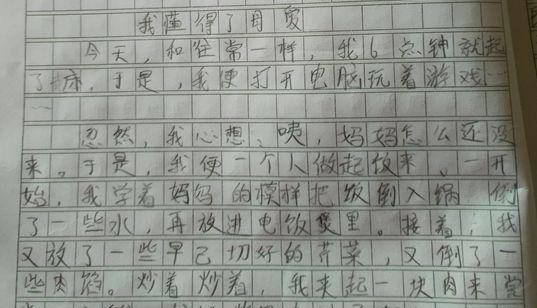 我懂得了母爱
今天，和往常一样，我6点钟就起
了床，于是，我便打开电脑玩着游戏…
…
忽然，我心想，咦，妈妈怎么还没
来。于是，我便一个人做起饭来。一开
始，我学着妈妈的模样把饭倒入锅，倒
了一些水，再放进电饭煲里。接着，我
又放了一些早已切好的芹菜，又倒了一
些肉馅。炒着炒着，我夹起一块肉来尝